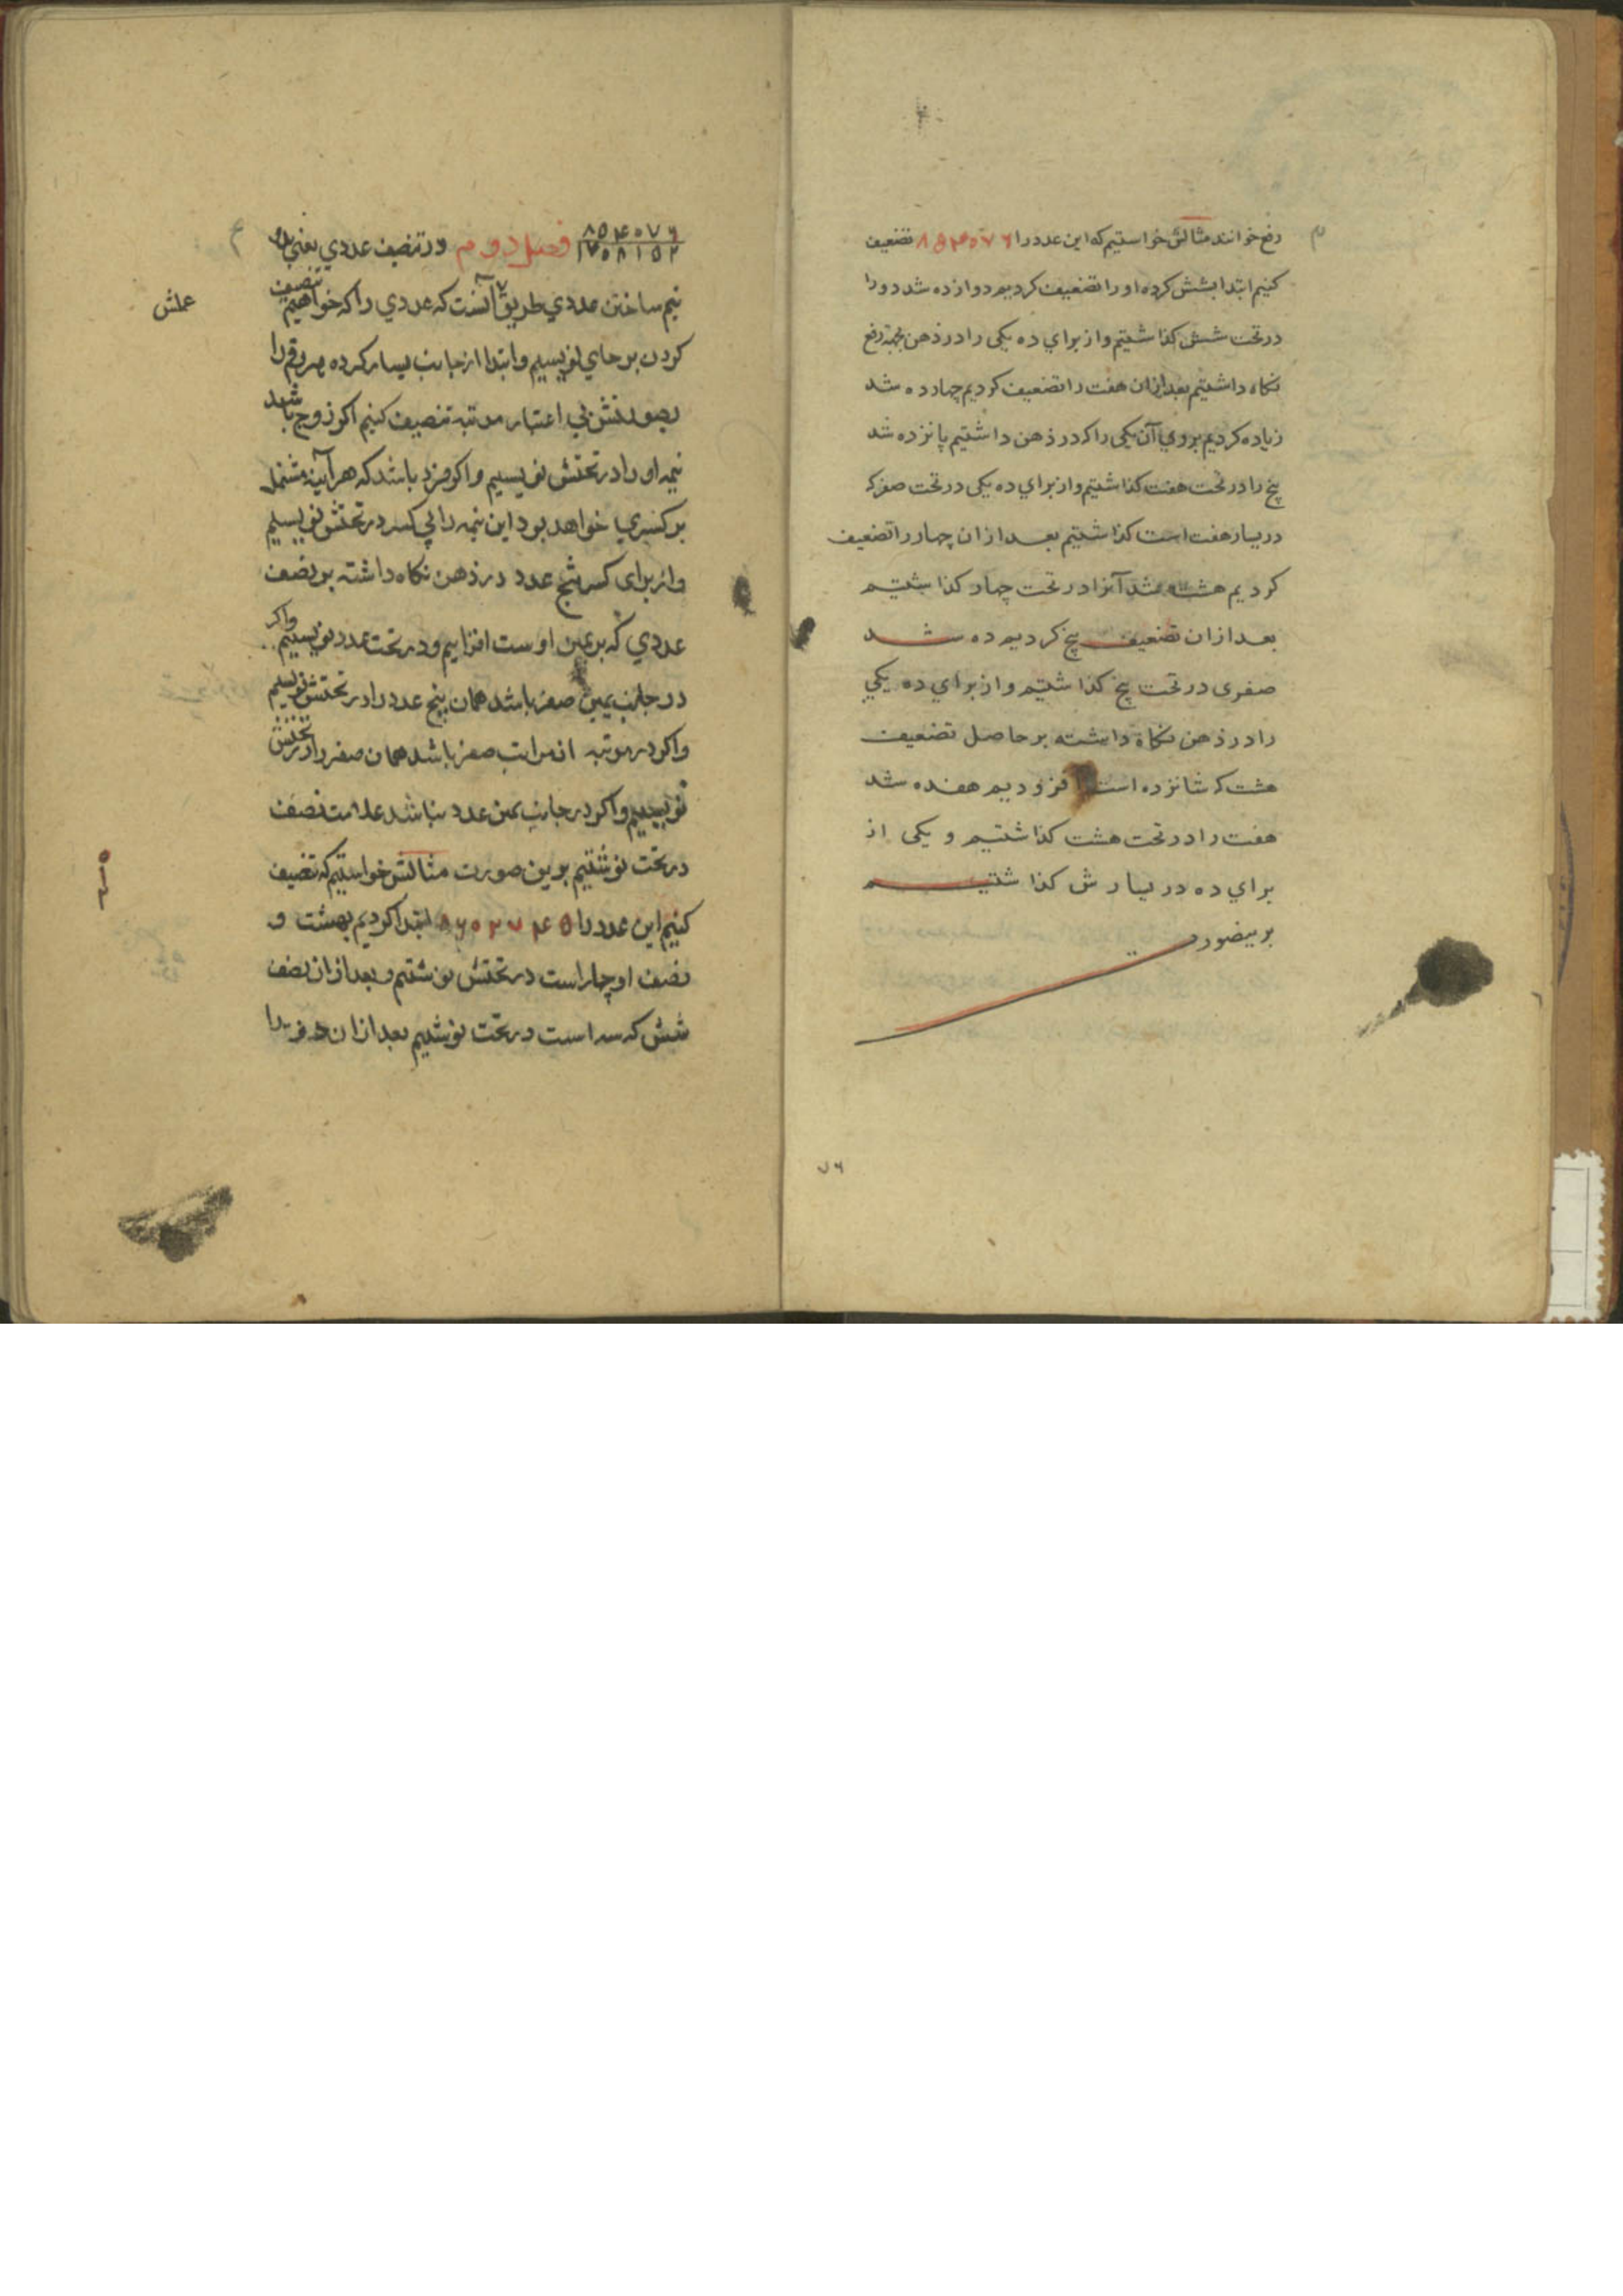 رفع خوانند مثالش خواستیم که این عدد را ۸۵۴۰۷۶ تضعیف
کنیم ابتدا بشش کرده او را تضعیف کردیم دوازده شد دو را
در تحت شش کذاشتیم و از برای ده یکی را در ذهن بجهة رفع
نکاه داشتیم بعد ازان هفت را تضعیف کردیم چهارده شد
زیاده کردیم بروی آن یکی را که در ذهن داشتیم پانزده شد
پنج را در تحت هفت کذاشتیم و از برای ده یکی در تحت صفر که
در یسار هفت است کذاشتیم بعد ازان چهار را تضعیف
کردیم هشت شد آنرا در تحت چهار کذاشتیم
بعد ازان تضعیف پنج کردیم ده شد
صفری در تحت پنج کذاشتیم و از برای ده یکی
را در ذهن نکاه داشته بر حاصل تضعیف
هشت که شانزده است افزودیم هفده شد
هفت را در تحت هشت کذاشتیم و یکی از
برای ده در یسارش کذاشتیم
برینصورت
۷۶
۸۵۴۰۷۶
۱۷۰۸۱۵۲
فصل دوم در تنصیف عددی یعنی
نیم ساختن عددی طریق آنست که عددی را که خواهیم تنصیف
عملش
کردن بر جای نویسیم و ابتدا از جانب یسار کرده هر رقم را
بصورتش بی اعتبار مرتبه تنصیف کنیم اکر زوج باشد
نیمه او را در تحتش نویسیم و اکر فرد باشد که هر آینه مشتمل
بر کسری خواهد بود این نیمه را بی کسر در تحتش نویسیم
و از برای کسر پنج عدد در ذهن نکاه داشته بر نصف
عددی که بر یمین اوست افزاییم و در تحت عدد نویسیم واکر
در جانب یمین صفر باشد همان پنج عدد را در تحتش نویسیم
واکر در مرتبه از مراتب صفر باشد همان صفر را در تحتش
نویسیم واکر در جانب یمین عدد نباشد علامت نصف
در تحت نوشتیم برین صورت مثالش خواستیم که تنصیف
کنیم این عدد را ۸۶۰۲۷۴۵ ابتدا کردیم بهشت و
نصف او چهار است در تحتش نوشتیم و بعد ازان نصف
شش که سه است در تحت نوشتیم بعد ازان صفر را